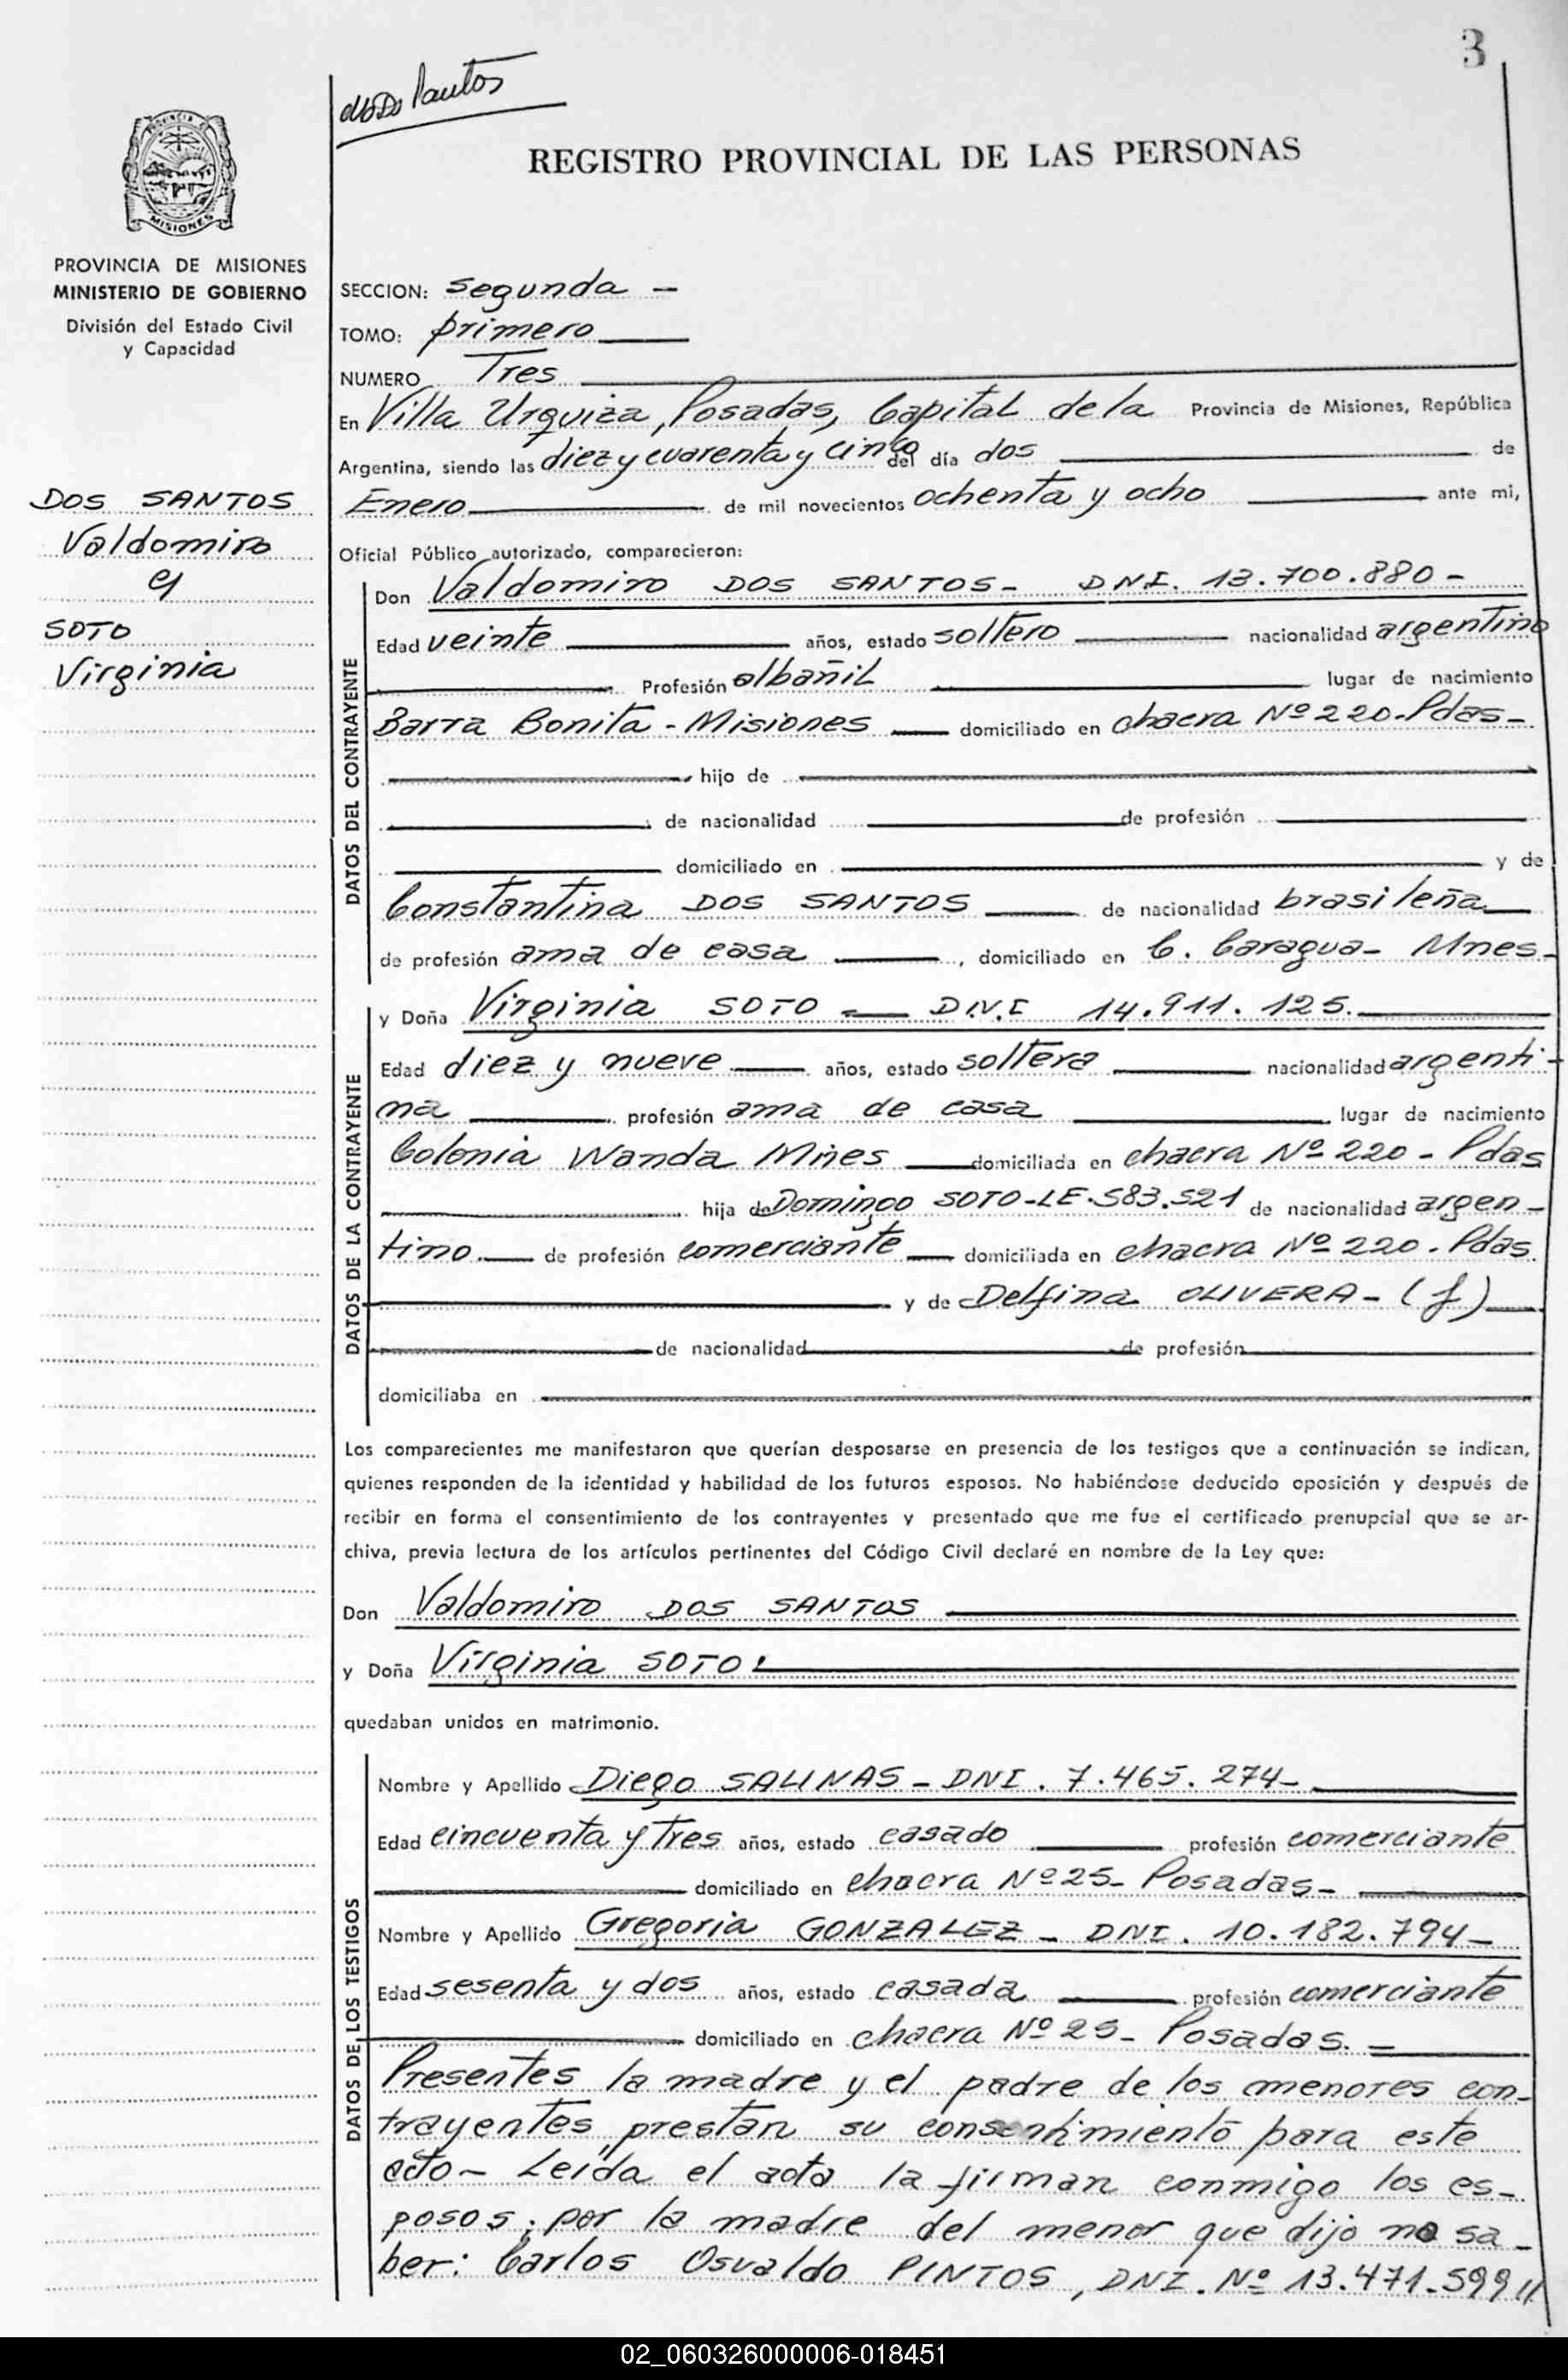 3
dos Santos
REGISTRO PROVINCIAL DE LAS PERSONAS
MISIONES
PROVINCIA DE MISIONES
MINISTERIO DE GOBIERNO
División del Estado Civil
y Capacidad
DOS SANTOS
Valdomiro
y
SOTO
Virginia
SECCION: segunda -
TOMO: primero
NUMERO Tres
En Villa Urquiza, Posadas, Capital de la Provincia de Misiones, República
Argentina, siendo las diez y cuarenta y cinco del día dos de
Enero de mil novecientos ochenta y ocho ante mi,
Oficial Público autorizado, comparecieron:
DATOS DEL CONTRAYENTE
Don Valdomiro DOS SANTOS - DNI. 13.700.880 -
Edad veinte años, estado soltero nacionalidad argentino
Profesión albañil lugar de nacimiento
Barra Bonita - Misiones domiciliado en chacra Nº 220 - Pdas -
hijo de
de nacionalidad de profesión
domiciliado en y de
Constantina DOS SANTOS de nacionalidad brasileña
de profesión ama de casa, domiciliado en C. Caragua - Mnes -
DATOS DE LA CONTRAYENTE
y Doña Virginia SOTO - D.N.I 14.911.125.
Edad diez y nueve años, estado soltera nacionalidad argenti-
na profesión ama de casa lugar de nacimiento
Colonia Wanda Mnes domiciliada en chacra Nº 220 - Pdas
hija de Domingo SOTO - LE. 583.521 de nacionalidad argen-
tino de profesión comerciante domiciliada en chacra Nº 220. Pdas
y de Delfina OLIVERA - (f)
de nacionalidad de profesión
domiciliaba en
Los comparecientes me manifestaron que querían desposarse en presencia de los testigos que a continuación se indican,
quienes responden de la identidad y habilidad de los futuros esposos. No habiéndose deducido oposición y después de
recibir en forma el consentimiento de los contrayentes y presentado que me fue el certificado prenupcial que se ar-
chiva, previa lectura de los artículos pertinentes del Código Civil declaré en nombre de la Ley que:
Don Valdomiro DOS SANTOS
y Doña Virginia SOTO.
quedaban unidos en matrimonio.
DATOS DE LOS TESTIGOS
Nombre y Apellido Diego SALINAS - DNI. 7.465.274 -
Edad cincuenta y tres años, estado casado profesión comerciante
domiciliado en chacra Nº 25 - Posadas -
Nombre y Apellido Gregoria GONZALEZ - DNI. 10.182.794 -
Edad sesenta y dos años, estado casada profesión comerciante
domiciliado en chacra Nº 25 - Posadas. -
Presentes la madre y el padre de los menores con-
trayentes, prestan su consentimiento para este
acto - Leída el acta la firman conmigo los es-
posos; por la madre del menor que dijo no sa-
ber: Carlos Osvaldo PINTOS, DNI. Nº 13.471.599 //
02_060326000006-018451